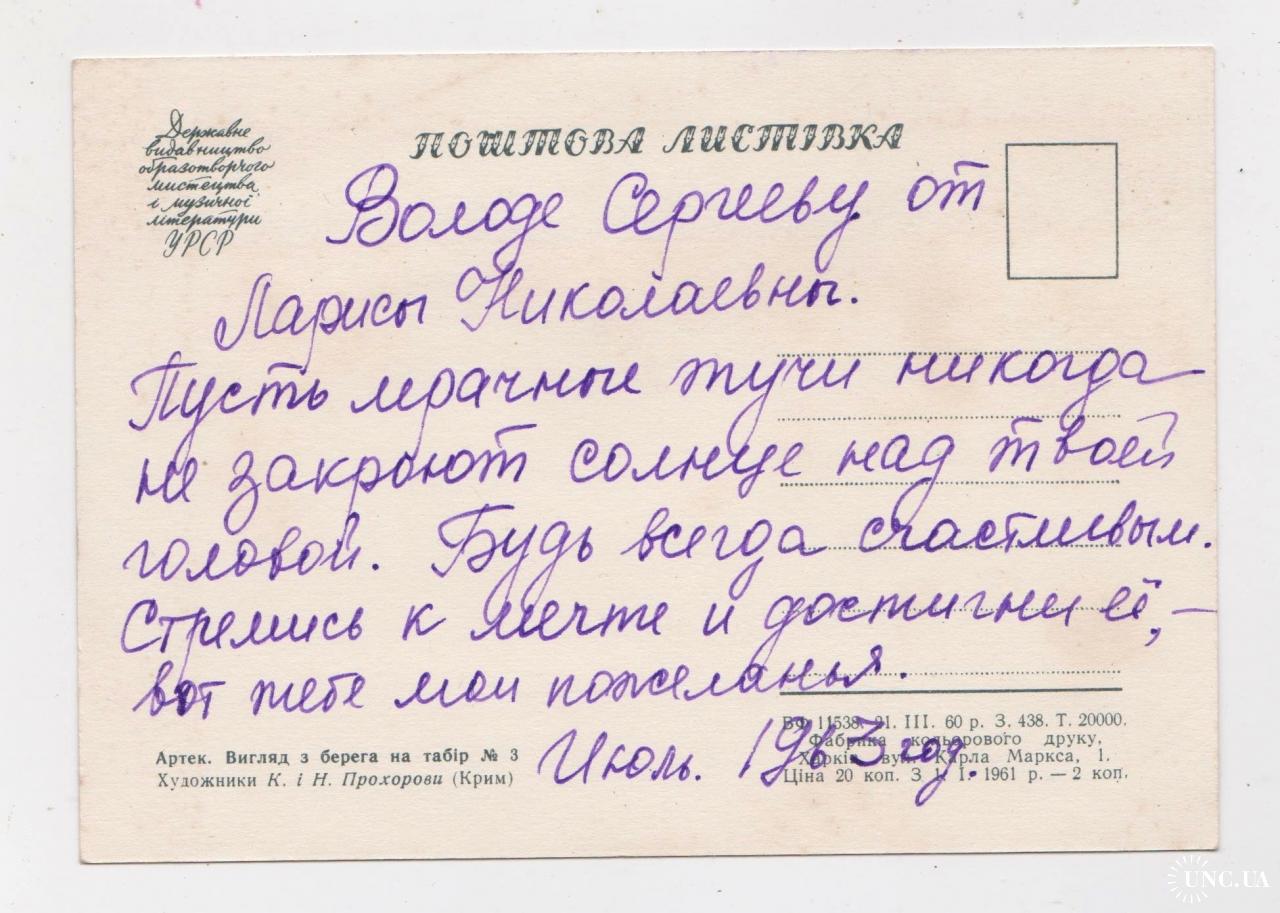 Державне
видавництво
образотворчого
мистецтва
і музичної
літератури
УРСР
ПОШТОВА ЛИСТІВКА
Володе Сергееву от
Ларисы Николаевны.
Пусть мрачные тучи никогда
не закроют солнце над твоей
головой. Будь всегда счастливым.
Стремись к мечте и достигни её, —
вот тебе мои пожеланья.
Июль. 1963 год.
Артек. Вигляд з берега на табір № 3
Художники К. і Н. Прохорови (Крим)
ВФ 11538. 21. III. 60 р. З. 438. Т. 20000.
Фабрика кольорового друку,
Харків, вул. Карла Маркса, 1.
Ціна 20 коп. З 1. I. 1961 р. — 2 коп.
UNC.UA